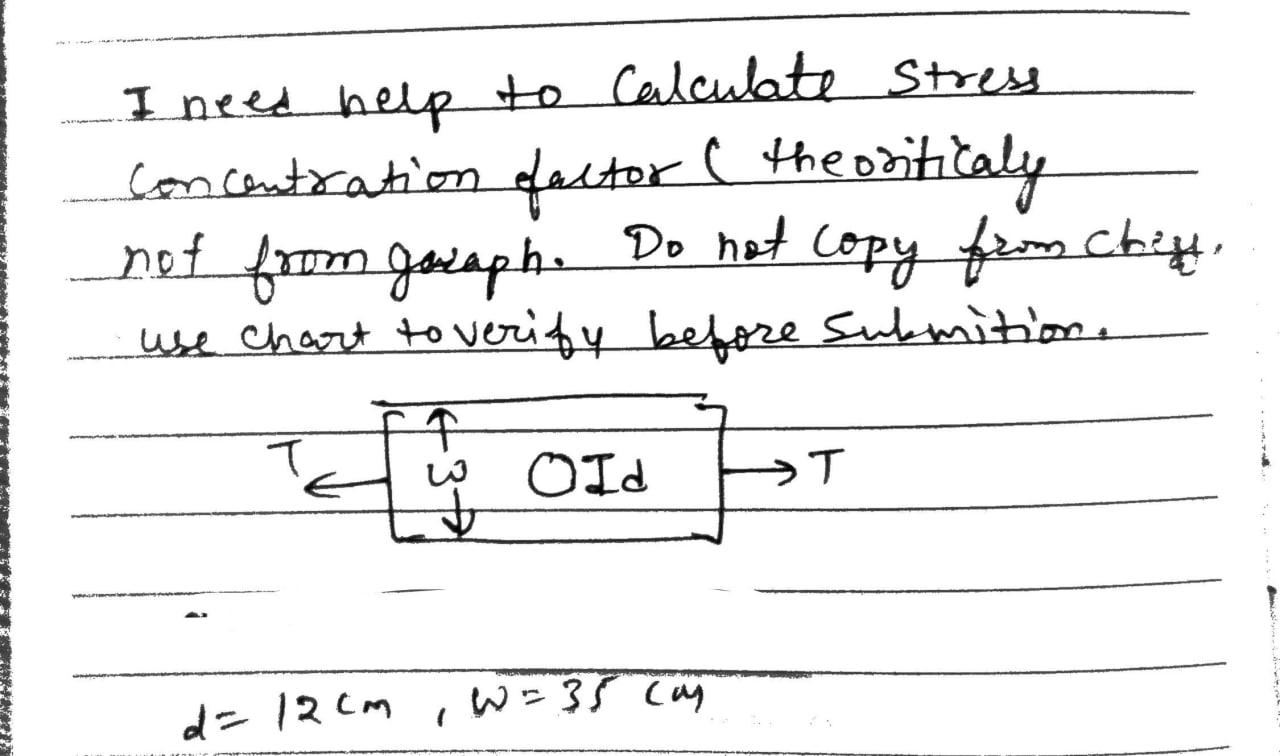 I need help to Calculate Stress
Concentration factor ( theoriticaly
not from garaph. Do not Copy from Chegg.
use chart to verify before Submition.
T W d T
d = 12 cm , W = 35 cm